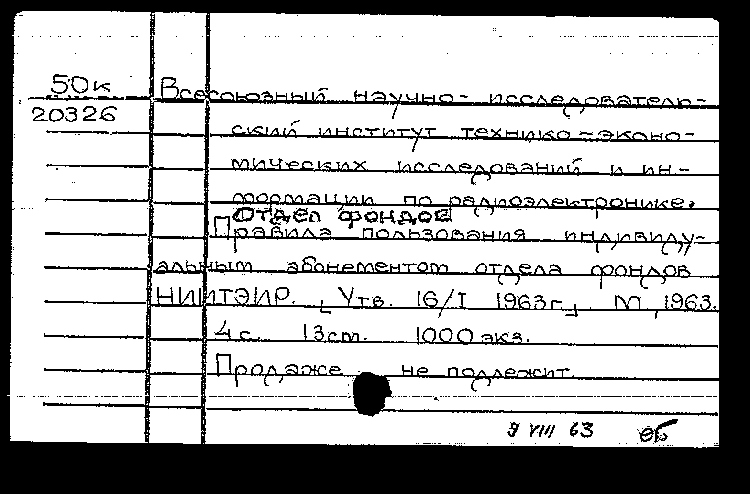 50к Всесоюзный научно-исследователь-
20326
ский институт технико-эконо-
мических исследований и ин-
формации по радиоэлектронике.
Отдел фондов
Правила пользования индивиду-
альным абонементом отдела фондов
НИИТЭИР. [Утв. 16/I 1963г.] М, 1963.
4 с. 13см. 1000 экз.
Продаже не подлежит.
9 VIII 63